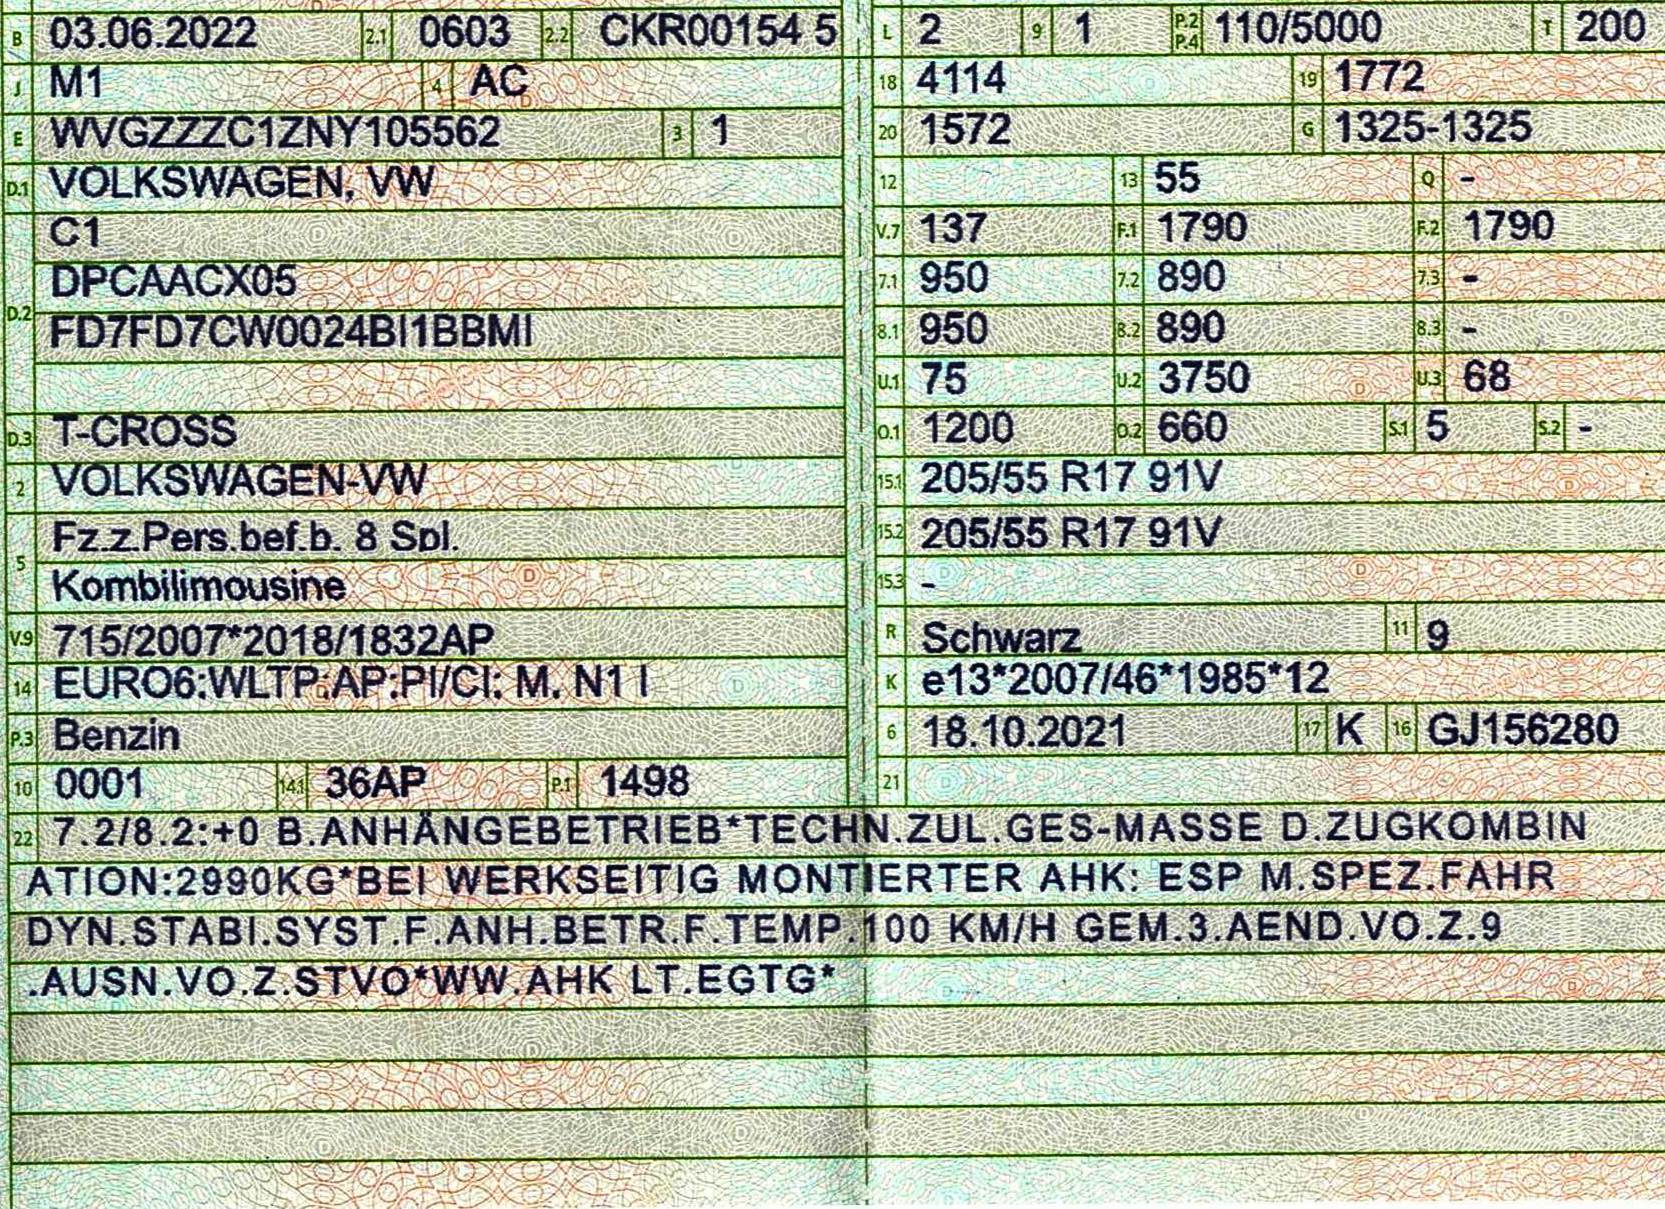 B 03.06.2022 2.1 0603 2.2 CKR00154 5
J M1 4 AC
E WVGZZZC1ZNY105562 3 1
D.1 VOLKSWAGEN, VW
C1
D.2 DPCAACX05
FD7FD7CW0024BI1BBMI
D.3 T-CROSS
2 VOLKSWAGEN-VW
5 Fz.z.Pers.bef.b. 8 Spl.
Kombilimousine
V.9 715/2007*2018/1832AP
14 EURO6:WLTP:AP:PI/CI: M, N1 I
P.3 Benzin
10 0001 14.1 36AP P.1 1498
L 2 9 1 P.2 P.4 110/5000 T 200
18 4114 19 1772
20 1572 G 1325-1325
12 13 55 Q -
V.7 137 F.1 1790 F.2 1790
7.1 950 7.2 890 7.3 -
8.1 950 8.2 890 8.3 -
U.1 75 U.2 3750 U.3 68
O.1 1200 O.2 660 S.1 5 S.2 -
15.1 205/55 R17 91V
15.2 205/55 R17 91V
15.3 -
R Schwarz 11 9
K e13*2007/46*1985*12
6 18.10.2021 17 K 16 GJ156280
21
22 7.2/8.2:+0 B.ANHÄNGEBETRIEB*TECHN.ZUL.GES-MASSE D.ZUGKOMBIN
ATION:2990KG*BEI WERKSEITIG MONTIERTER AHK: ESP M.SPEZ.FAHR
DYN.STABI.SYST.F.ANH.BETR.F.TEMP.100 KM/H GEM.3.AEND.VO.Z.9
.AUSN.VO.Z.STVO*WW.AHK LT.EGTG*